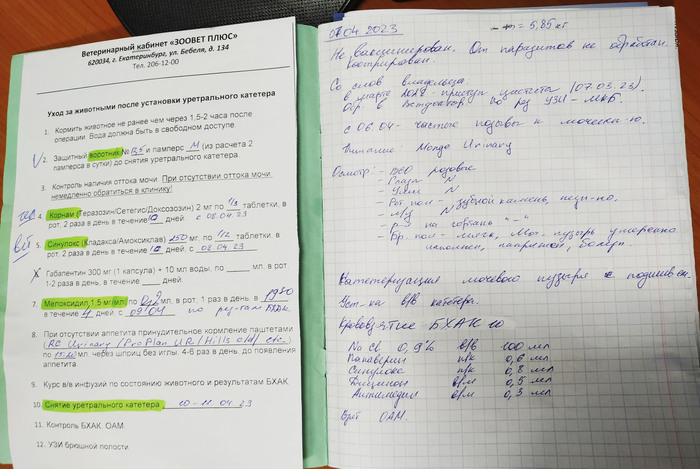 Ветеринарный кабинет «ЗООВЕТ ПЛЮС»
620034, г. Екатеринбург, ул. Бебеля, д. 134
Тел. 206-12-00
Уход за животными после установки уретрального катетера
1. Кормить животное не ранее чем через 1,5-2 часа после
операции. Вода должна быть в свободном доступе.
2. Защитный воротник № и памперс M (из расчета 2
памперса в сутки) до снятия уретрального катетера.
3. Контроль наличия оттока мочи. При отсутствии оттока мочи
немедленно обратиться в клинику!
4. Корнам (Теразозин/Сетегис/Доксозозин) 2 мг по 1/3 таблетки, в
рот, 2 раза в день в течение 10 дней. с 08.04.23
5. Синулокс (Кладакса/Амоксиклав) 250 мг, по 1/2 таблетки, в
рот, 2 раза в день в течение дней. с 08.04.23
Габапентин 300 мг (1 капсула) + 10 мл воды, по ____ мл. в рот,
1-2 раза в день, в течение ____ дней.
7. Мелоксидил 1,5 мг/мл по 0,2 мл, в рот, 1 раз в день, в
в течение 4 дней. с 09.04 по рез-там БХАК.
8. При отсутствии аппетита принудительное кормление паштетами
(RC Urinary / ProPlan UR / Hills c/d / etc
по 15-20 мл. через шприц без иглы. 4-6 раз в день, до появления
аппетита.
9. Курс в/в инфузий по состоянию животного и результатам БХАК.
10. Снятие уретрального катетера 10-11.04.23
11. Контроль БХАК. ОАМ.
12. УЗИ брюшной полости.
07.04.2023 m = 5,85 кг
Не вакцинирован. От паразитов не обработан.
Кастрирован.
Со слов владельца
в марте приступ цистита (07.03.23).
Обр в по рез УЗИ - МКБ.
с 06.04 - частые позывы к мочеисп-ю.
Питание Monge Urinary
Осмотр: - розовые
- N
- N
- Рот. пол - зубной камень,
- М/У N
- р-я на гортань "-"
- Бр. пол - мягк, Моч. пузырь умеренно
наполнен, напряжен, болезн.
Катетеризация мочевого пузыря с подшиван.
Уст-ка в/в катетера.
Крововзятие БХАК 10
Na Cl 0,9% в/в 100 мл
Папаверин п/к 0,6 мл
Синулокс п/к 0,8 мл
Дицинон в/м 0,5 мл
в/м 0,3 мл
ОАМ.